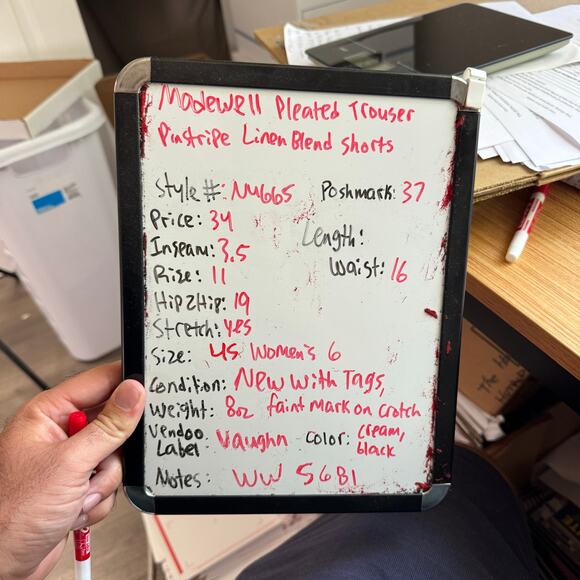 Madewell Pleated Trouser
Pinstripe Linen Blend Shorts
Style #: NU665 Poshmark: 37
Price: 34
Length:
Inseam: 3.5
Waist: 16
Rise: 11
Hip2Hip: 19
Stretch: yes
Size: US Women's 6
Condition: New With Tags,
Weight: 8oz faint mark on crotch
Vendoo Label Vaughn Color: cream, black
Notes: WW 5681